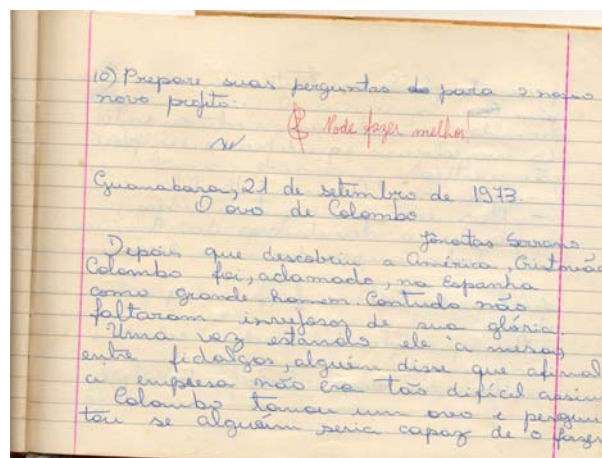 10) Prepare suas perguntas do para o nosso
novo projeto.
Pode fazer melhor!
Guanabara, 21 de setembro de 1973.
O ovo de Colombo
Jonatas Serrano
Depois que descobriu a América, Cristovão
Colombo foi, aclamado, na Espanha
como grande homem. Contudo não
faltaram invejosos de sua glória.
Uma vez estando ele a mesa,
entre fidalgos, alguém disse que afinal
a empresa não era tão difícil assim
Colombo tomou um ovo e pergun
tou se alguém seria capaz de o fazer